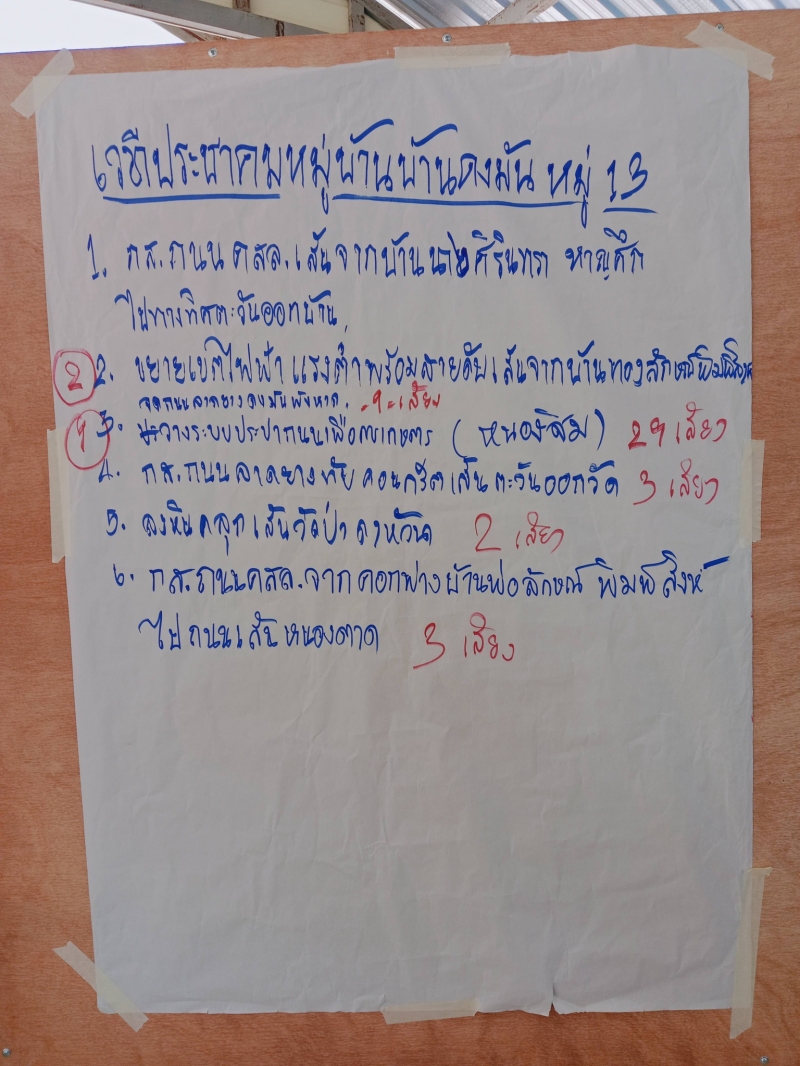 เวทีประชาคมหมู่บ้านบ้านดงมัน หมู่ 13
1. กส.ถนน คสล.เส้นจากบ้านนายศิรินทรา หาญศึก
ไปทางทิศตะวันออกบ้าน
2 2. ขยายเขตไฟฟ้าแรงต่ำพร้อมสายดับเส้นจากบ้านทองลักษณ์
จากถนนลาดยางดงมัน เสียง
1 3. วางระบบประปาถนนเพื่อการเกษตร (หนองสิม) 29 เสียง
4. กส.ถนนลาดยางทับคอนกรีตเส้นตะวันออกวัด 3 เสียง
5. ลงหินคลุกเส้นวัดป่า 2 เสียง
6. กส.ถนนคสล.จากคอกฟางบ้านพ่อลักษณ์ พิมพ์สิงห์
ไปถนนเส้นหนองตาด 3 เสียง